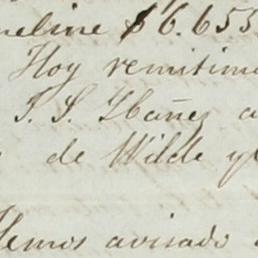 meline $6.655
Hoy remitimo
T. S. Ybañez a
de Wilde y
Hemos avisado